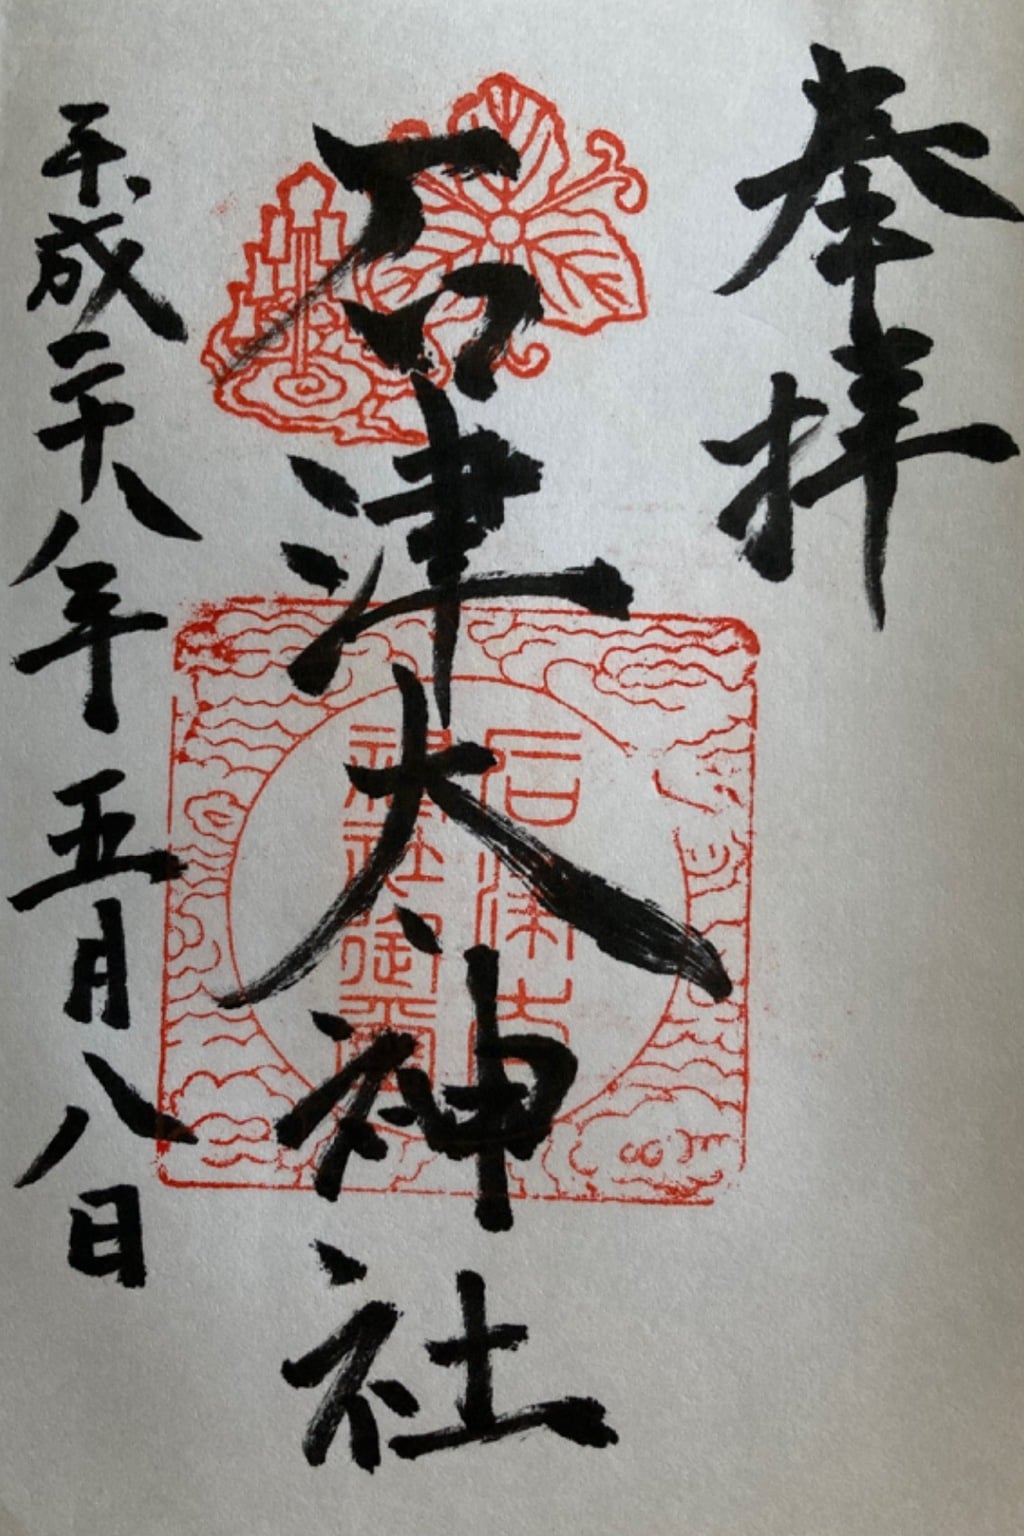 奉拝
石津大神社
石津大
神社御璽
平成二十八年五月八日